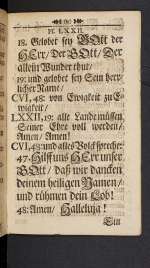 Ps. LXXII.
18. Gelobet sey GOtt der
HErr / Der GOtt / Der
allein Wunder thut /
19: und gelobet sey Sein herr-
licher Name /
CVI, 48: von Ewigkeit zu E-
wigkeit /
LXXII, 19: alle Lande müssen
Seiner Ehre voll werden /
Amen / Amen!
CVI, 48: und alles Volck spreche:
47. Hilff uns HErr unser
GOtt / daß wir dancken
deinem heiligen Namen /
und rühmen dein Lob!
48: Amen / Halleluja!
Ein